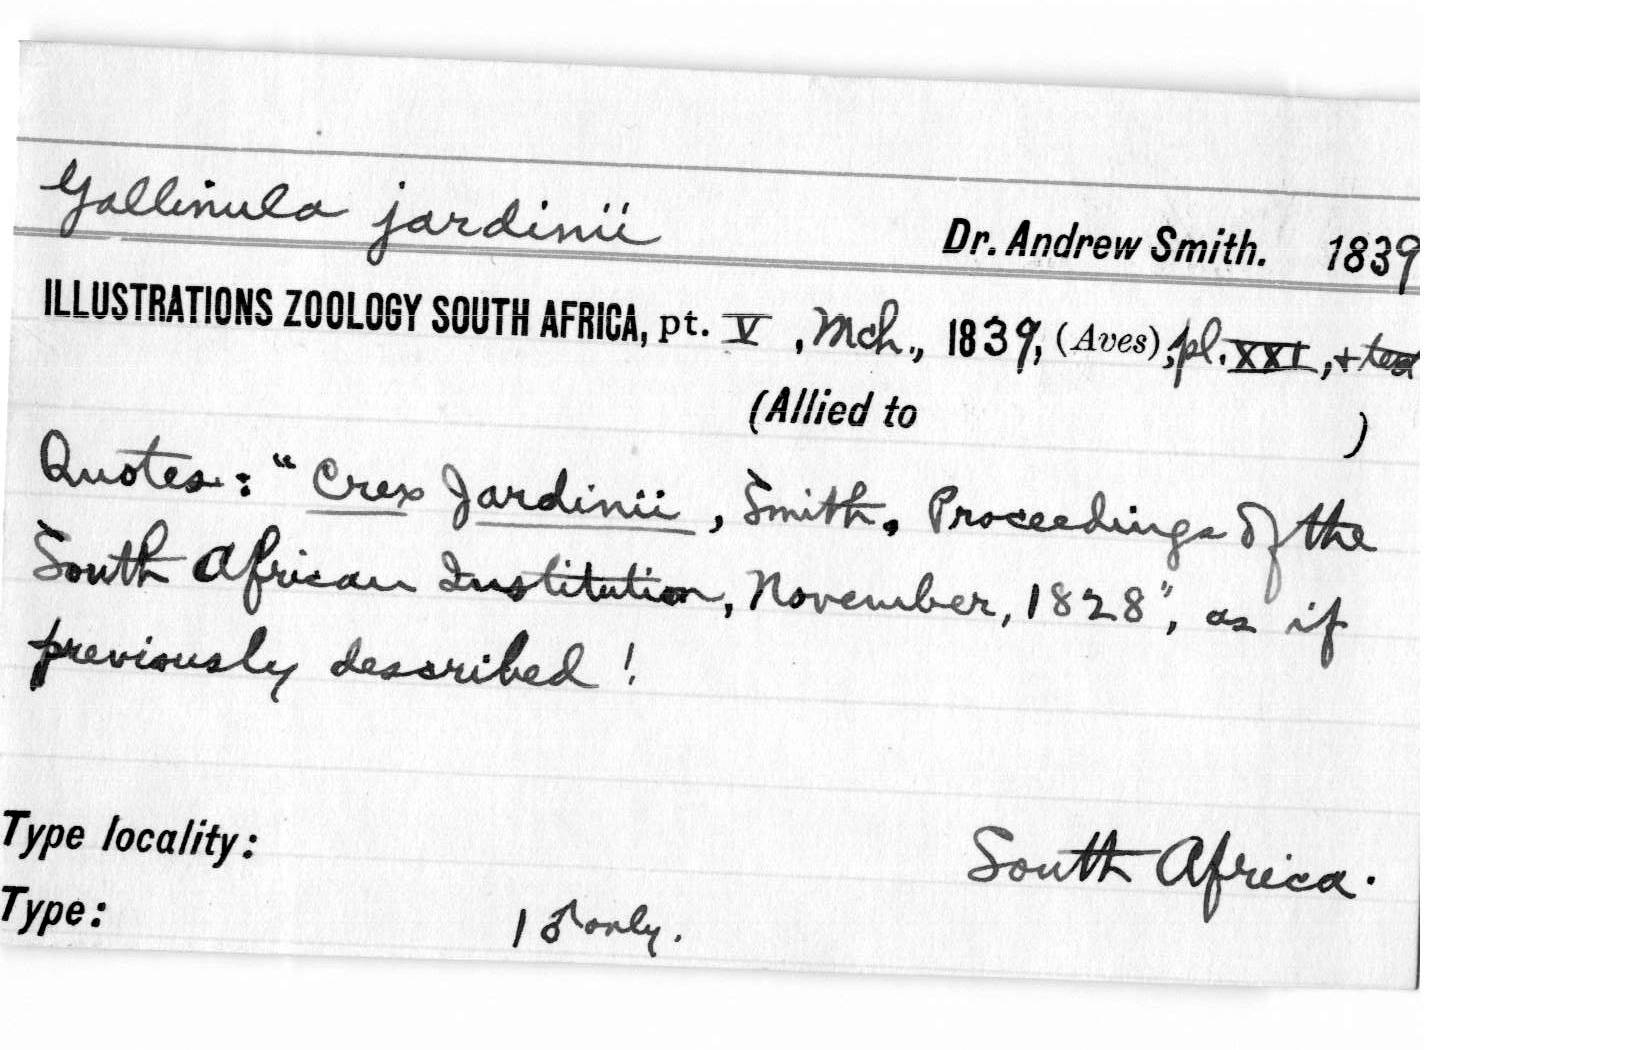 Gallinula jardinii Dr. Andrew Smith. 1839
ILLUSTRATIONS ZOOLOGY SOUTH AFRICA, pt. V, Mch., 1839, (Aves), pl. XXI, + tex
(Allied to )
Quotes: "Crex Jardinii, Smith, Proceedings of the
South African Institution, November, 1828", as if
previously described!
Type locality: South Africa.
Type: 1 ♂ only.